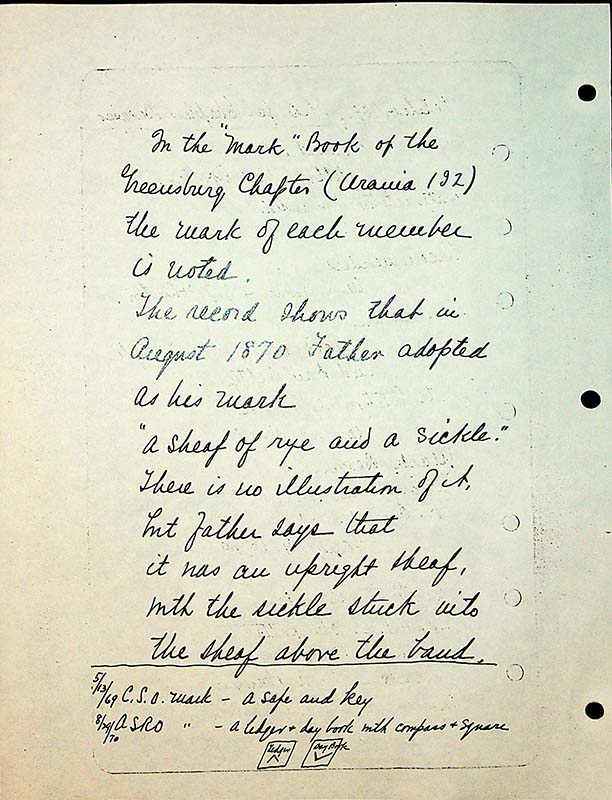 In the "Mark" Book of the
Greensburg Chapter (Urania 192)
the mark of each member
is noted.
The record shows that in
August 1870 Father adopted
as his mark
"a sheaf of rye and a sickle."
There is no illustration of it,
but Father says that
it was an upright sheaf,
with the sickle stuck into
the sheaf above the band.
5/13/69 C.S.O. Mark – a safe and key
8/29/70 ASRO " – a ledger + day book with compass + square
Ledger Day Book